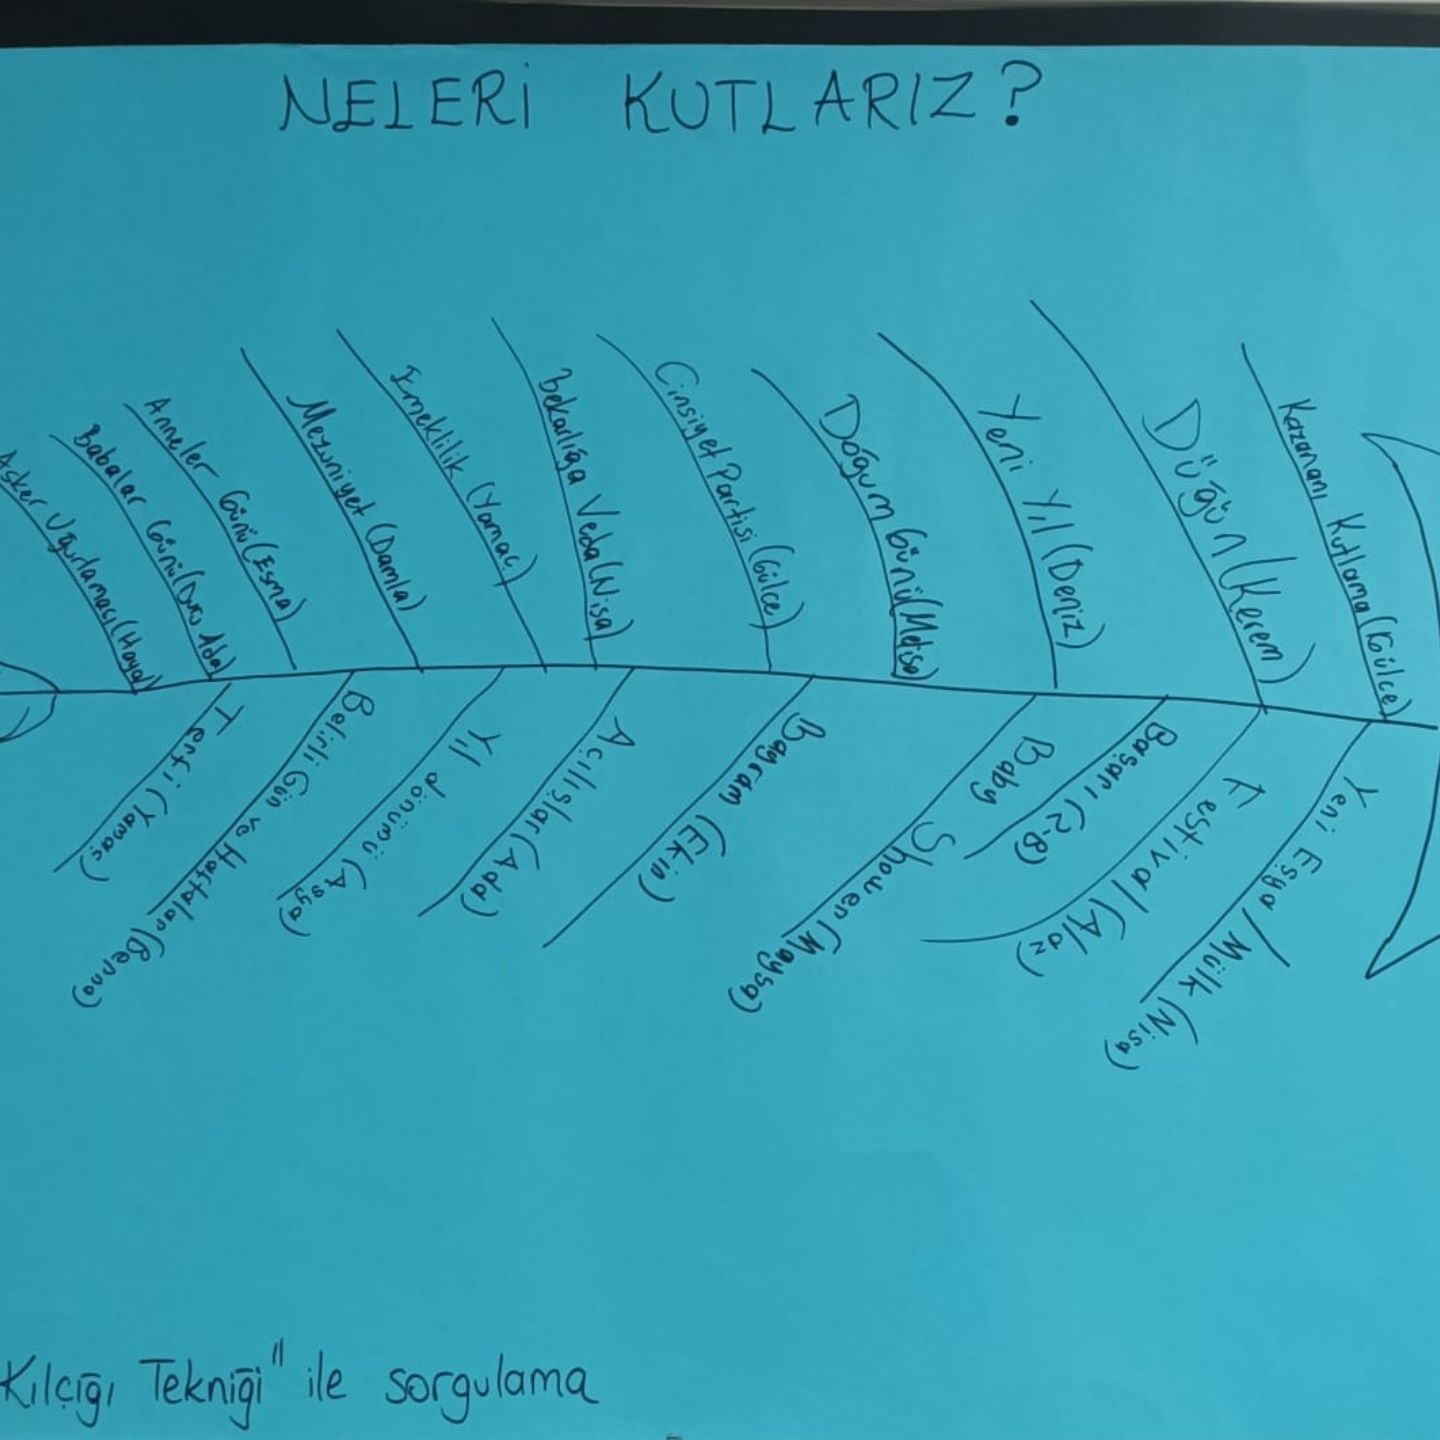 NELERİ KUTLARIZ?
Asker Uğurlaması (Hayal)
Babalar Günü (Duru Ada)
Anneler Günü (Esma)
Mezuniyet (Damla)
Emeklilik (Yamaç)
Bekarlığa Veda (Nisa)
Cinsiyet Partisi (Gülce)
Doğum Günü (Melisa)
Yeni Yıl (Deniz)
Düğün (Kerem)
Kazananı Kutlama (Gülce)
Terfi (Yamaç)
Belirli Gün ve Haftalar (Berna)
Yıl dönümü (Asya)
Açılışlar (Ada)
Bayram (Ekin)
Baby Shower (Maysa)
Başarı (2-B)
Festival (Alaz)
Yeni Eşya / Mülk (Nisa)
Kılçığı Tekniği" ile sorgulama